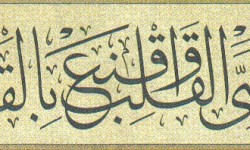 ى القلب واقنع بِالق